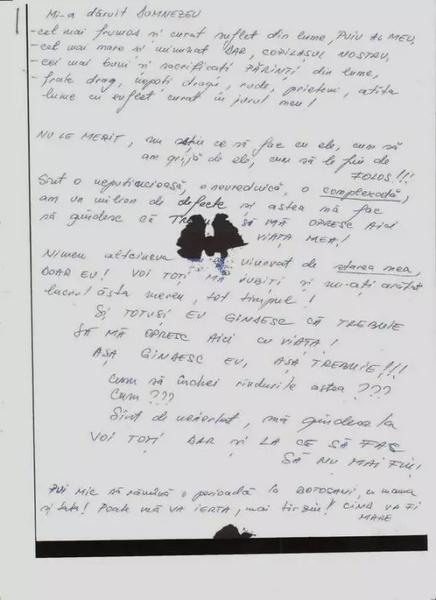 Mi-a dăruit DUMNEZEU
-cel mai frumos și curat suflet din lume, PUIU AL MEU,
-cel mai mare și minunat DAR, COPILAȘUL NOSTRU,
-cei mai buni și sacrificați PĂRINȚI din lume,
-frate drag, nepoți dragi, rude, prieteni, atîta
lume cu suflet curat în jurul meu!
NU LE MERIT, nu știu ce să fac cu ele, cum să
am grijă de ele, cum să le fiu de
FOLOS!!!
Sînt o neputincioasă, o nevrednică, o complexată,
am un milion de defecte și astea mă fac
să gîndesc că SĂ MĂ OPRESC AICI
VIAȚA MEA!
Nimeni altcineva vinovat de starea mea,
DOAR EU! VOI TOȚI MĂ IUBIȚI și mi-ați arătat
lucrul ăsta mereu, tot timpul!
ȘI TOTUȘI EU GÎNDESC CĂ TREBUIE
SĂ MĂ OPRESC AICI CU VIAȚA!
AȘA GÎNDESC EU, AȘA TREBUIE!!!
Cum să închei rîndurile astea???
Cum???
Sînt de neiertat, mă gîndesc la
VOI TOȚI DAR și LA CE SĂ FAC
SĂ NU MAI FIU!
PUI MIC să rămînă o perioadă la BOTOȘANI, cu mama
și tata! Poate mă VA IERTA, mai tîrziu! CÎND VA FI
MARE